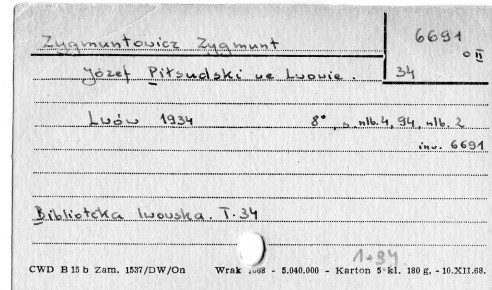 Zygmuntowicz Zygmunt
6691
o II
34
Józef Piłsudski we Lwowie.
Lwów 1934 8°, s. nlb. 4, 94, nlb. 2
inv. 6691
Biblioteka lwowska. T. 34
1+94
CWD B 15 b Zam. 1537/DW/On Wrak 1068 - 5.040.000 - Karton 5 kl. 180 g, - 10.XII.68.